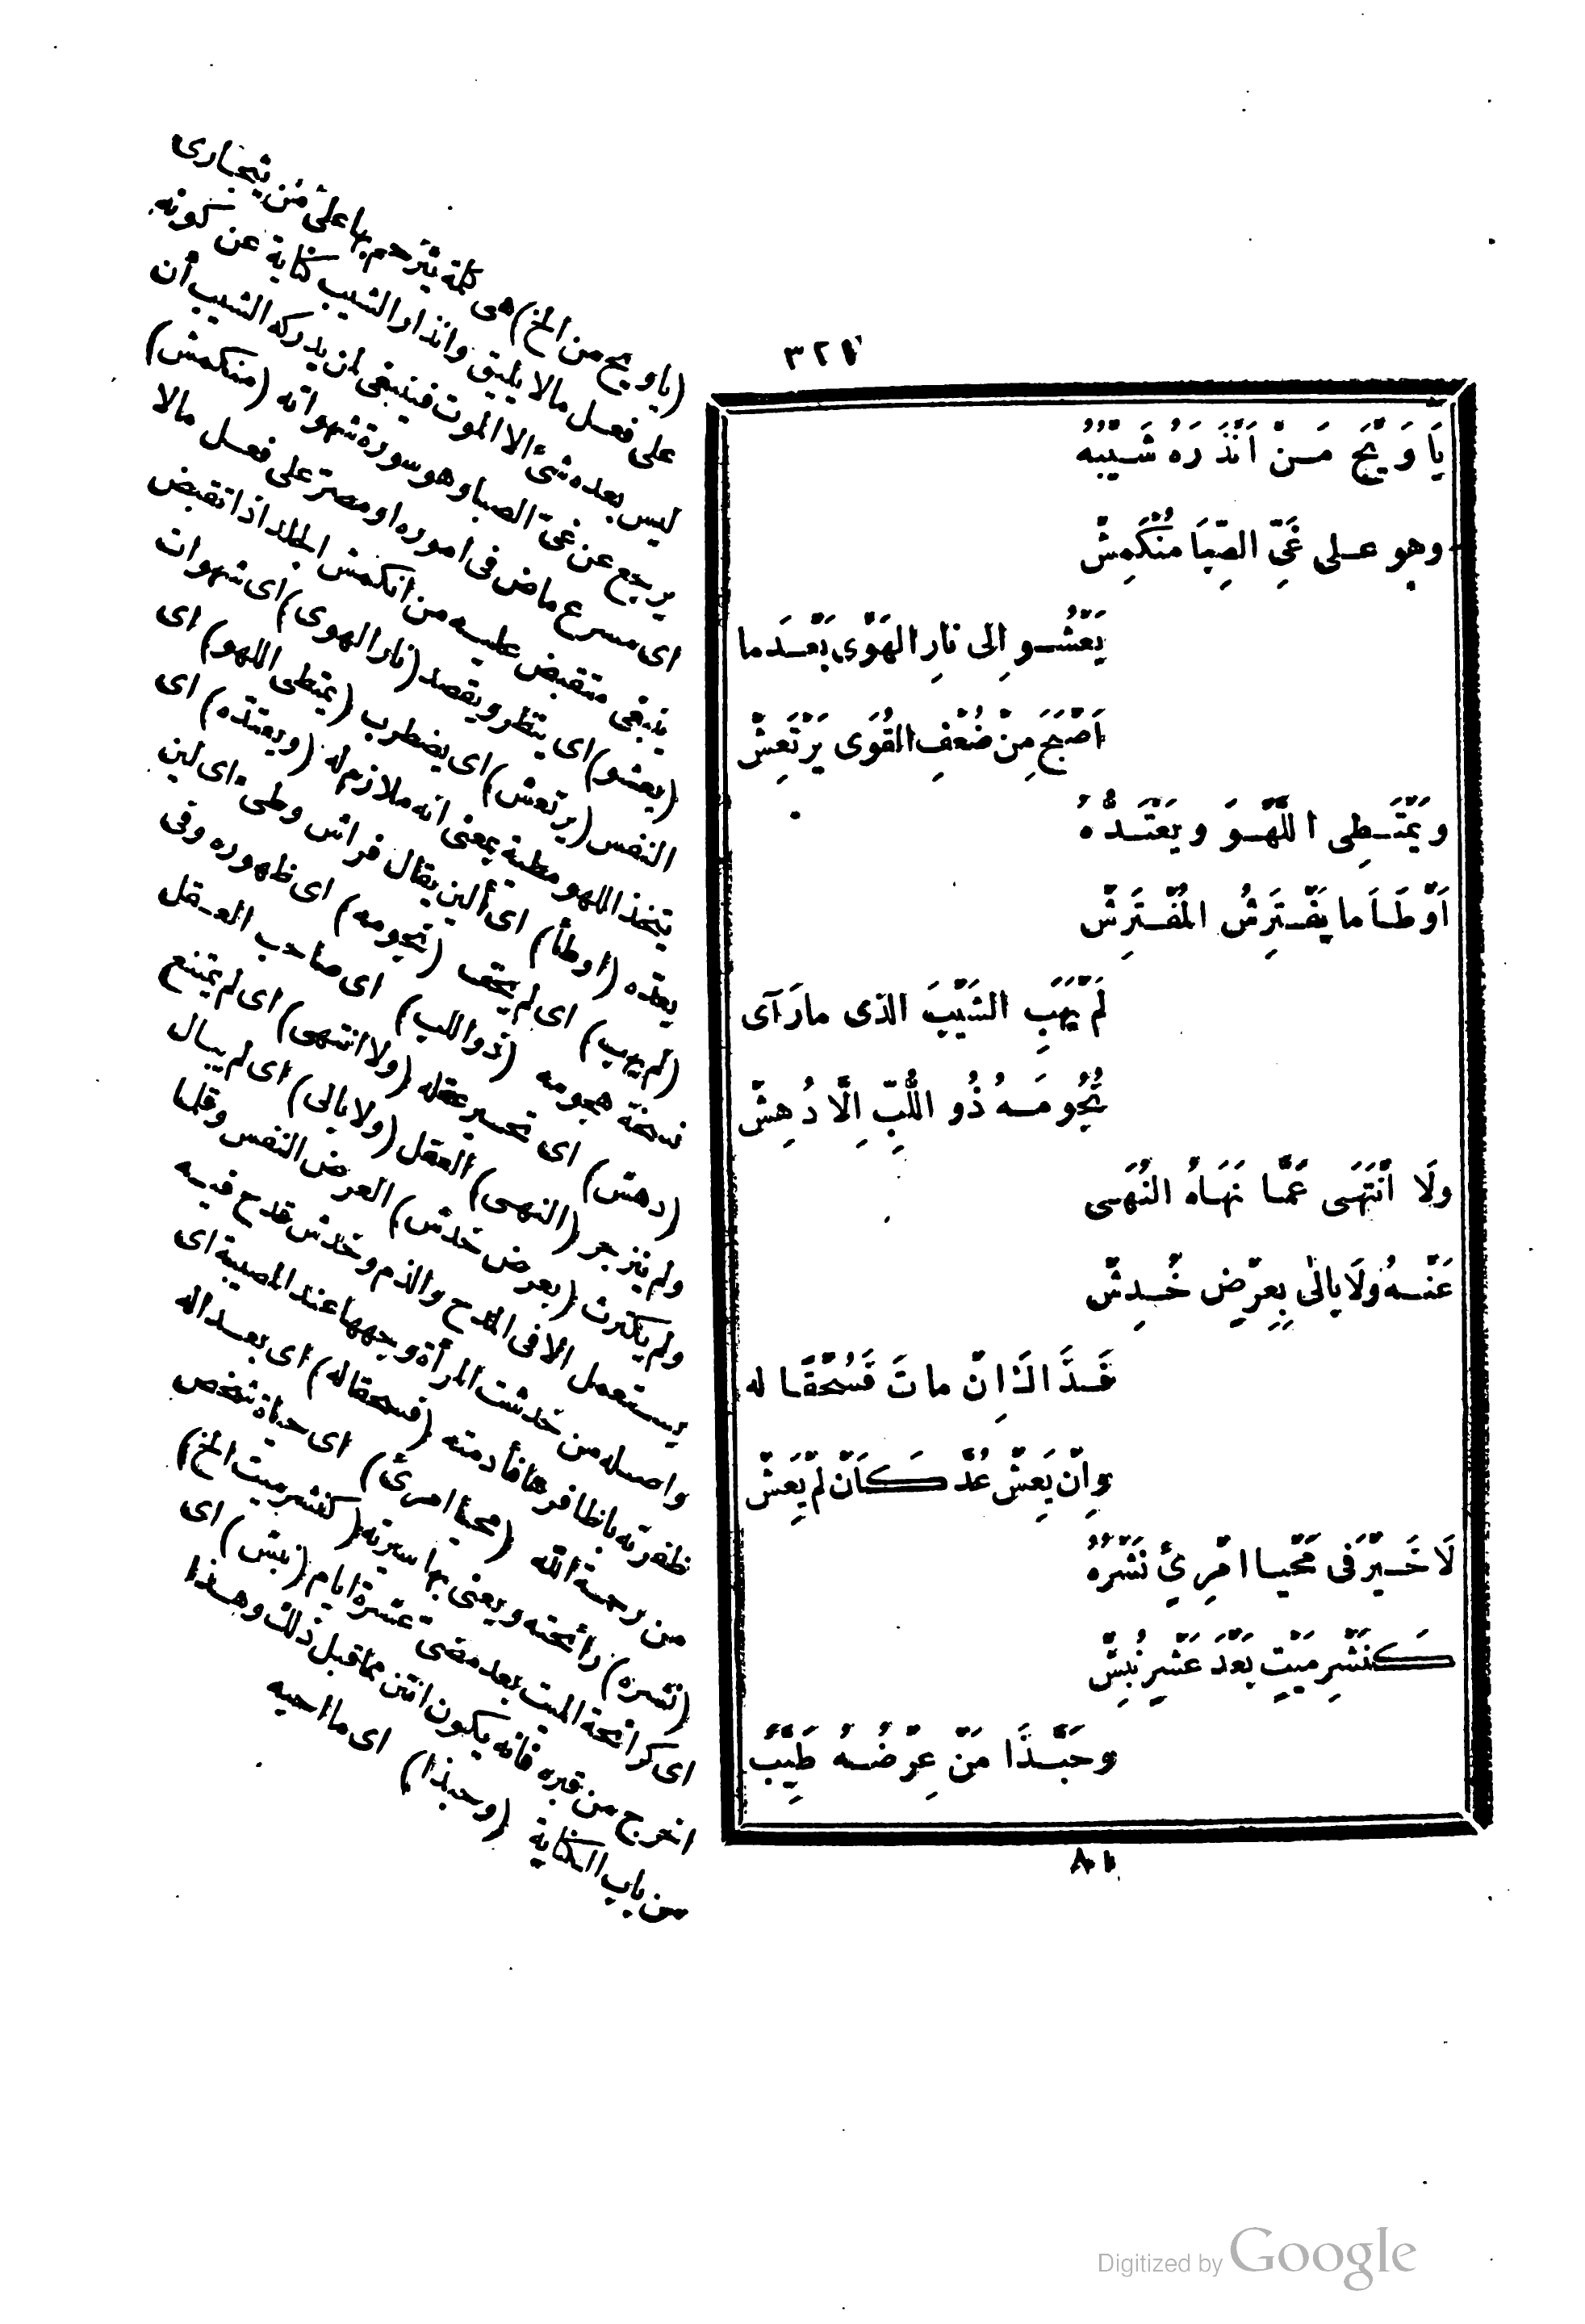 ٣٢١
يَا وَيْحَ مَـنْ اَنْذَرَهُ شَـيْبُهُ
وهو عـلى غَيِّ الصِّبَا مُنْكَمِشْ
يَعْشُـو اِلى نارِ الهَوَى بَعْـدَما
اَصْبَحَ مِنْ ضُعْفِ القُوَى يَرْتَعِشْ
ويَمْتَـطِى اللَّهْـوَ ويَعْتَـدُّهُ
اَوْطَـأَ ما يَفْـتَرِشُ المُفْـتَرِشْ
لَمْ يَهَبِ الشَيْبَ الذى مارَآى
نُجُومَـهُ ذُو اللُّبِّ اِلَّا دُهِشْ
ولَا انْتَهَـى عَمَّـا نَهَـاهُ النُهَـى
عَنْـهُ ولَا بالى بِعِرْضٍ خُـدِشْ
فَـذَاكَ اِنْ ماتَ فَسُحْقًـا له
واِنْ يَعِشْ عُدَّ كَاَنْ لَمْ يَعِشْ
لَا خَـيْرَ فى مَحْيـا امْرِئٍ نَشْرُهُ
كَنَشْرِ مَيْتٍ بَعْدَ عَشْرٍ نُبِشْ
وحَبَّـذَا مَنْ عِرْضُـهُ طَيِّبٌ
٨١
(ياويح من الخ) هى كلمة يترحم بها على من يتجارى
على فعـل مالا يليق وانذار الشيب كناية عن كونه
ليس بعده شئ الا الموت فينبغى لمن يدركه الشيب أن
يرجع عن غىّ الصبا وهو سورة شهواته (منكمش)
اى مسرع ماض فى اموره او مصرّ على فعـل مالا
ينبغى متقبض عليـه من انكمش الجلد اذا تقبض
(يعشو) اى ينظر ويقصد (نار الهوى) اى شهوات
النفس (يرتعش) اى يضطرب (يمتطى اللهو) اى
يتخذ اللهو مطية بمعنى انه ملازم له (ويعتدّه) اى
يعدّه (اوطأ) اى ألين يقال فراش وطئ اى لين
(لم يهب) اى لم يخف (نجومه) اى ظهوره وفى
نسخة هجومه (ذو اللب) اى صاحب العـقل
(دهش) اى تحير عقله (ولا انتهى) اى لم يمتنع
ولم ينزجر (النهـى) العقل (ولا بالى) اى لم يبـال
ولم يكترث (بعرض خدش) العرض النفس وقلما
يستعمل الا فى المدح والذم وخدش قدح فيـه
واصـله من خدشت المرأة وجهها عند المصيبة اى
ظفرته باظافرها فأدمته (فسحقا له) اى بعـدا له
من رحمـة الله (محيا امرئ) اى حياة شخص
(نشره) رائحته ويعنى بها سيرته (كنشر ميت الخ)
اى كرائحة الميت بعد مضىّ عشرة ايام (نبش) اى
اخرج من قبره فانه يكون انتن مما قبل ذلك وهـذا
من باب الكناية (وحبذا) اى ما احبه
Digitized by Google